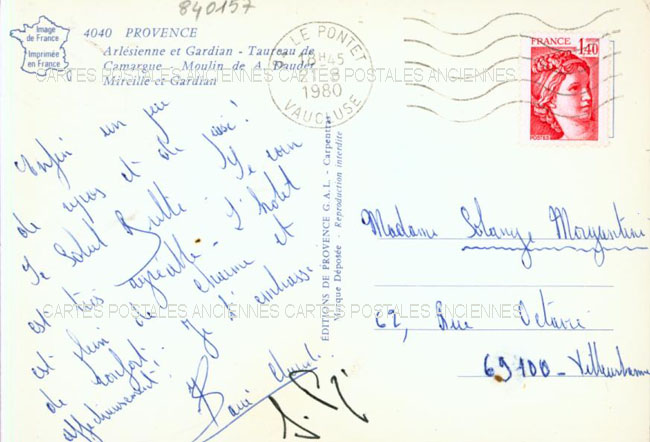 840157
Image
de France
Imprimée
en France
4040 PROVENCE
Arlésienne et Gardian - Taureau de
Camargue - Moulin de A. Daudet
Mireille et Gardian
LE PONTET
18H45
21-8
1980
VAUCLUSE
FRANCE
1,40
POSTES
CARTES POSTALES ANCIENNES CARTES POSTALES ANCIENNES
Enfin un peu
de repos et de
Le Soleil Brille. Le coin
est très agréable. L'hotel
est plein de charme et
de confort. Je t'embrasse
affectueusement!
CARTES POSTALES ANCIENNES CARTES POSTALES ANCIENNES
EDITIONS DE PROVENCE G.A.L. - Carpentras
Marque Déposée - Reproduction interdite
Madame Solange Morgantini
62, Rue Octavie
69100 - Villeurbanne